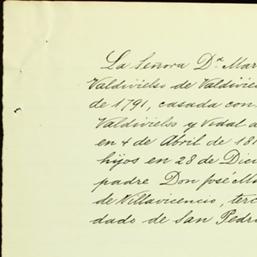 La Señora Dª Mar
Valdivielso de Valdivie
de 1791, casada con
Valdivielso y Vidal a
en 4 de Abril de 181
hijos en 28 de Dici
padre Don José Ma
de Villavicencio, terc
dado de San Pedr